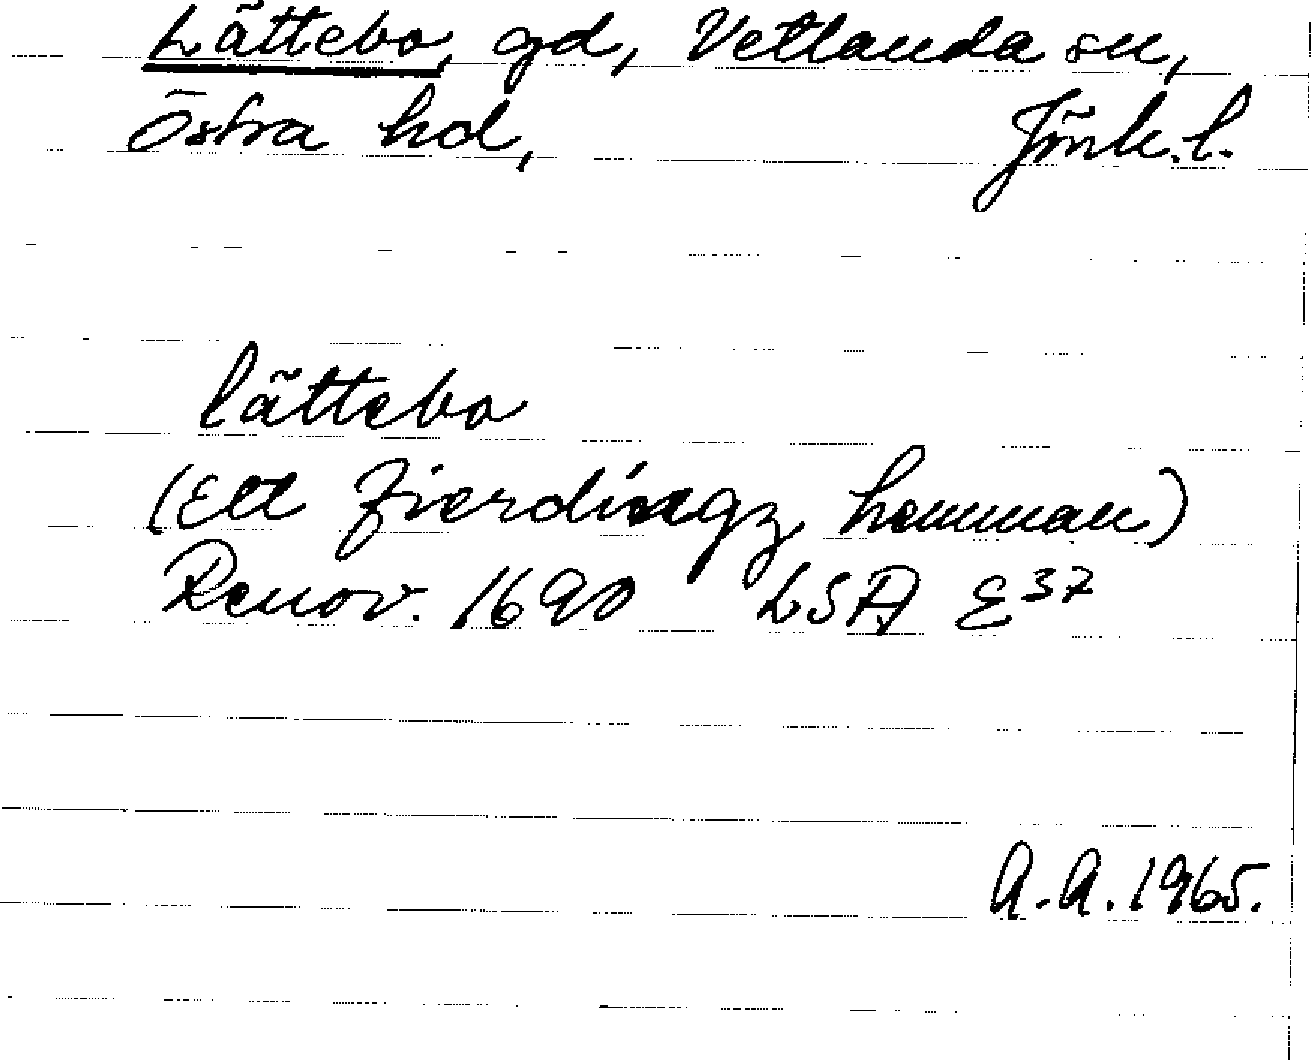 Lättebo, gd, Vetlanda sn,
Östra hd, Jönk.l.
Lättebo
(Ett fierdingz hemman)
Renov. 1690 LSA E37
A.A. 1965.